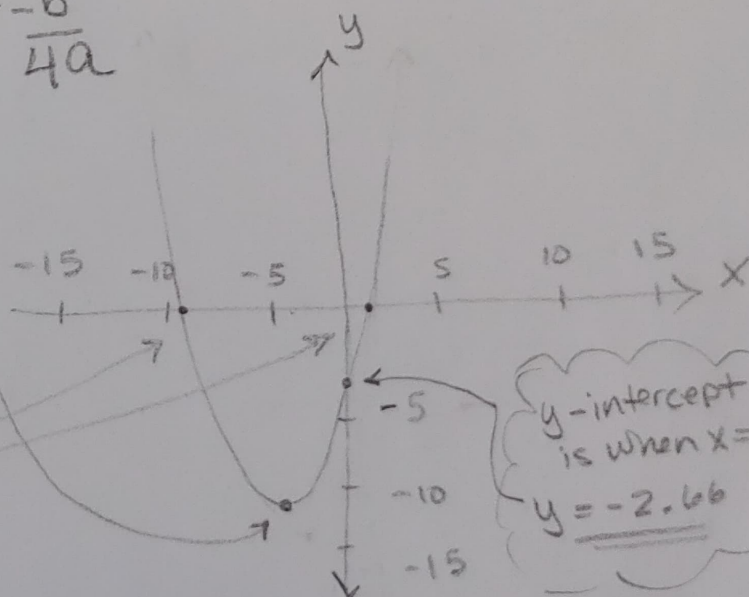 -b
4a
y
-15 -10 -5 5 10 15 x
-5
-10
-15
y-intercept
is when x=
y = -2.66